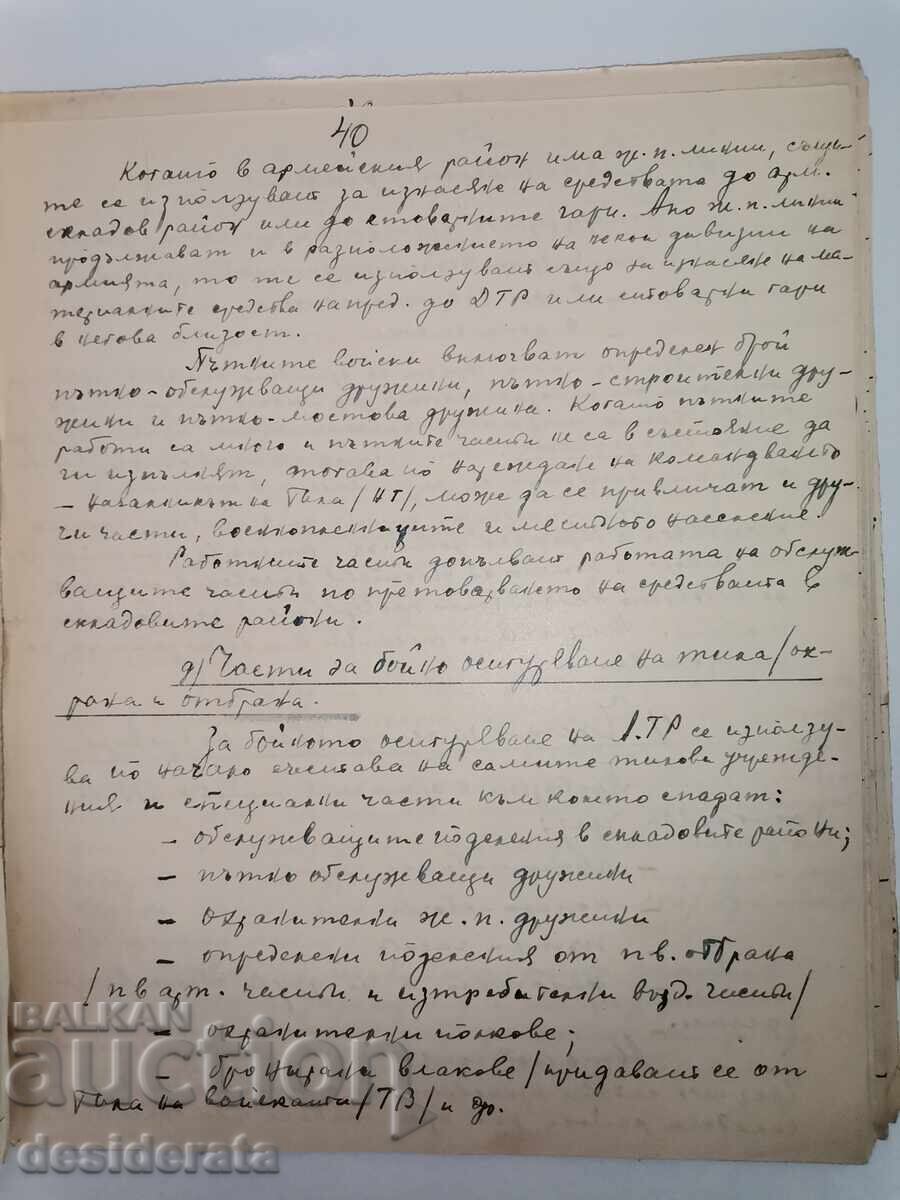 40
Когато в армейския район има ж.п. линии, същи-
те се използуват за изнасяне на средствата до арм.
складов район или до стоварните гари. Ако ж.п. линии
продължават и в разположението на некои дивизии на
армията, то те се използуват също за изнасяне на ма-
териалните средства напред. до ДТР или стоварни гари
в негова близост.
Пътните войски включват определен брой
пътно-обслужващи дружини, пътно-строителни дру-
жини и пътно-мостова дружина. Когато пътните
работи са много и пътните части не са в състояние да
ги изпълнят, тогава по нареждане на командването
– началникът на Тила /НТ/, може да се привличат и дру-
ги части, военнопленниците и местното население.
Работните части допълват работата на обслуж-
ващите части по претоварването на средствата в
складовите райони.
д/ Части за бойно осигуряване на тила /ох-
рана и отбрана.
За бойното осигуряване на А.ТР се използу-
ва по начало състава на самите тилови учрежде-
ния и специални части към които спадат:
– обслужващите поделения в складовите райони;
– пътно обслужващи дружини
– охранителни ж.п. дружини
– определени поделения от пв. отбрана
/пв арт. части и изтребителни възд. части/
– охранителни полкове;
– бронирани влакове /придават се от
Тила на войската /ТВ/ и др.
BALKAN
auction
desiderata